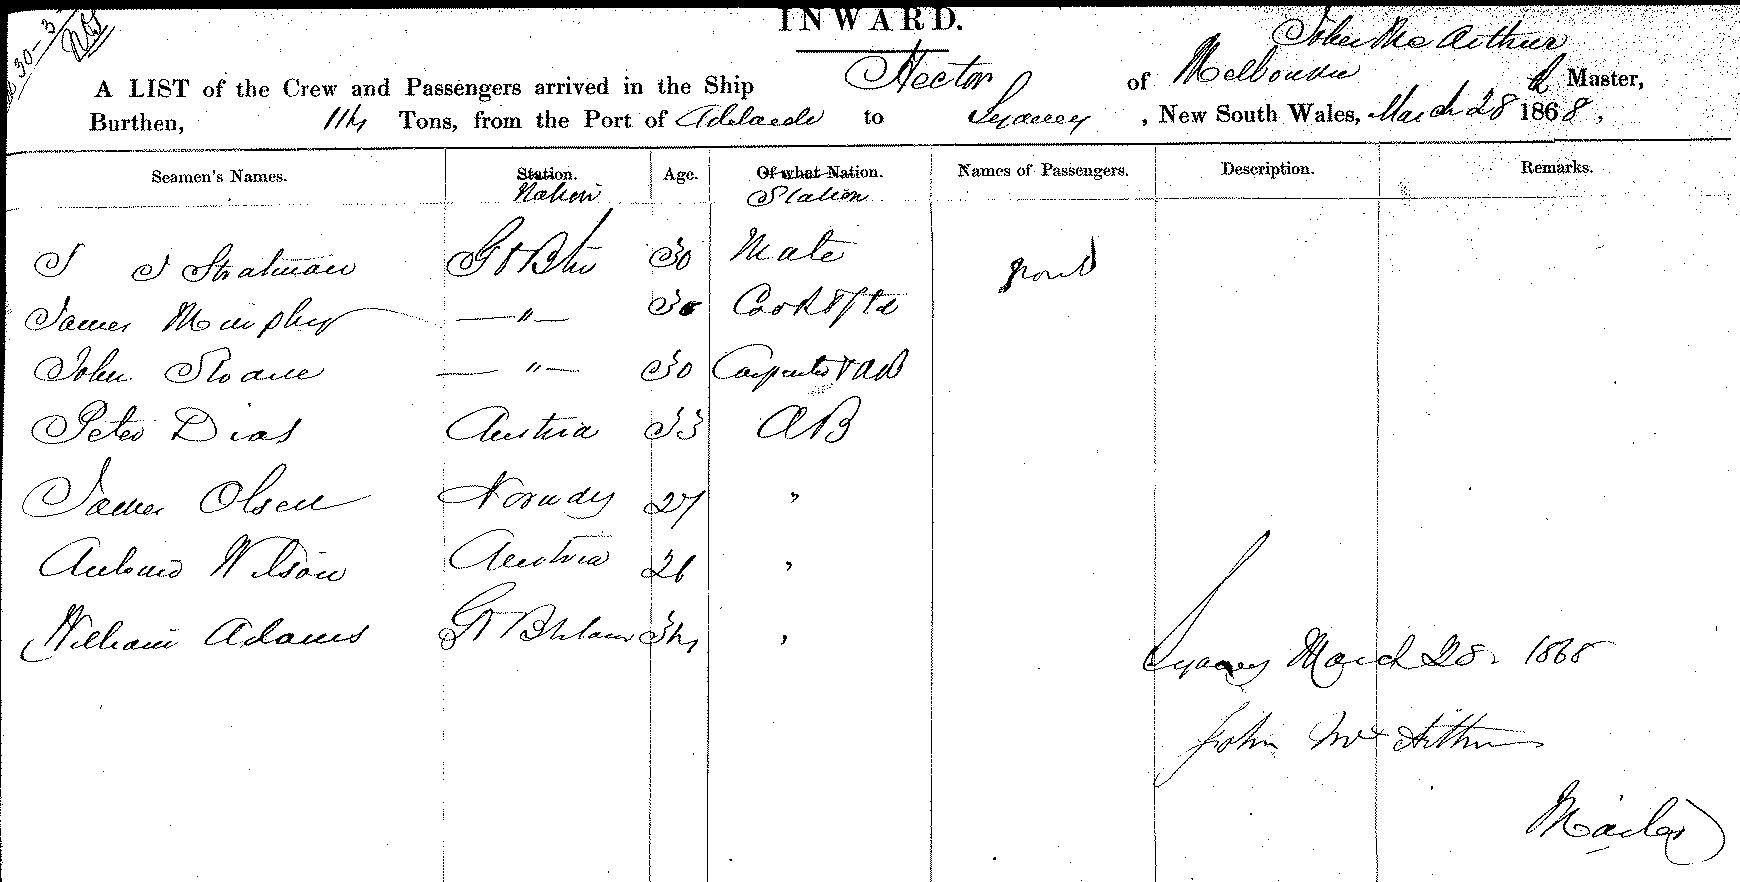 30-3
INWARD.
John McArthur
A LIST of the Crew and Passengers arrived in the Ship Hector of Melbourne Master,
Burthen, 114 Tons, from the Port of Adelaide to Sydney, New South Wales, March 28 1868.
Seamen's Names. Station. Age. Of what Nation. Names of Passengers. Description. Remarks.
Nation Station
J J Stratman Gt Btn 30 Mate
James Murphy — " — 30 Cook &
John Sloane — " — 30 Carpenter & AB
Peter Dias Austria 33 AB
James Olsen Norway 27 "
Antonio Wilson Austria 26 "
William Adams Gt Britain 34 "
Sydney March 28. 1868
John Mc Arthur
Master